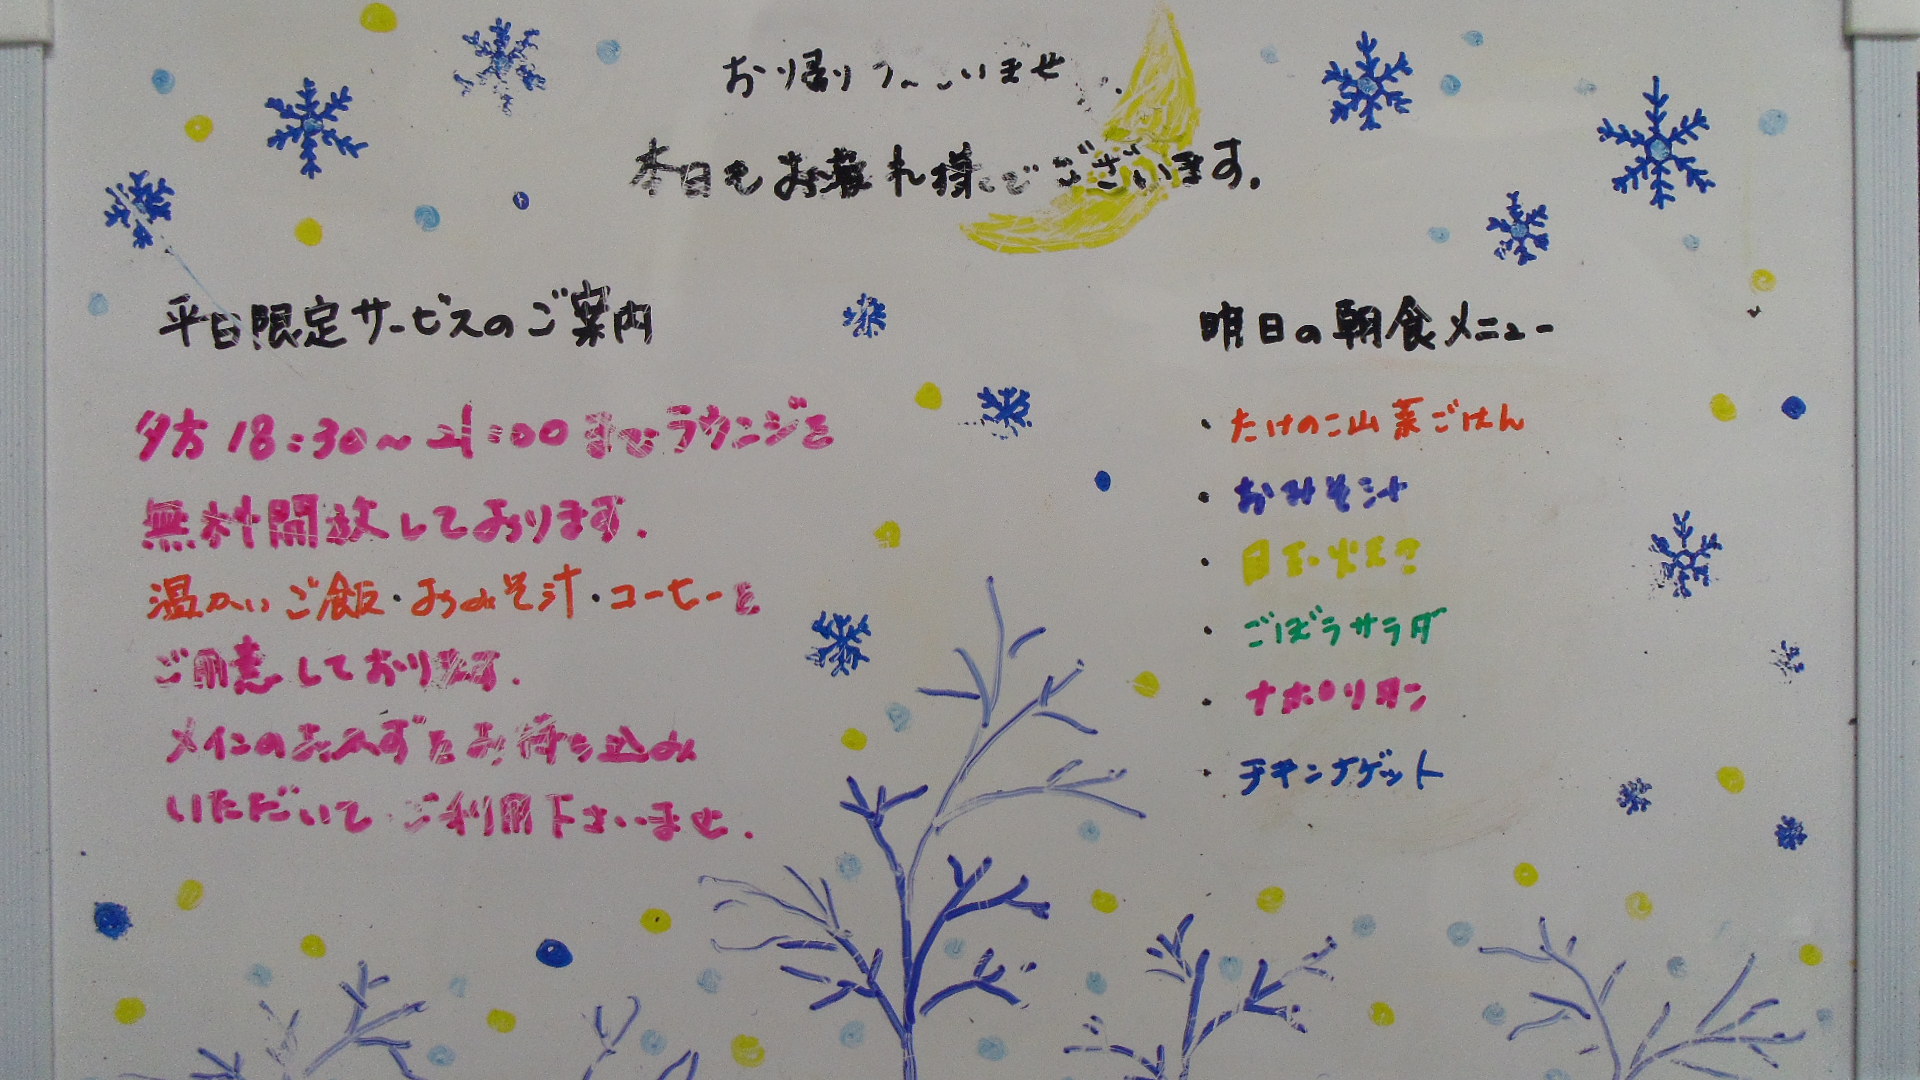 おり帰りなさいませ
本日もお疲れ様でございます。
平日限定サービスのご案内
夕方18:30~21:00までラウンジを
無料開放しております。
温かいご飯・おみそ汁・コーヒーを
ご用意しております。
メインのおかずをお持ち込み
いただいてご利用下さいませ.
明日の朝食メニュー
・たけのこ山菜ごはん
・おみそ汁
・目玉焼き
・ごぼうサラダ
・ナポリタン
・チキンナゲット